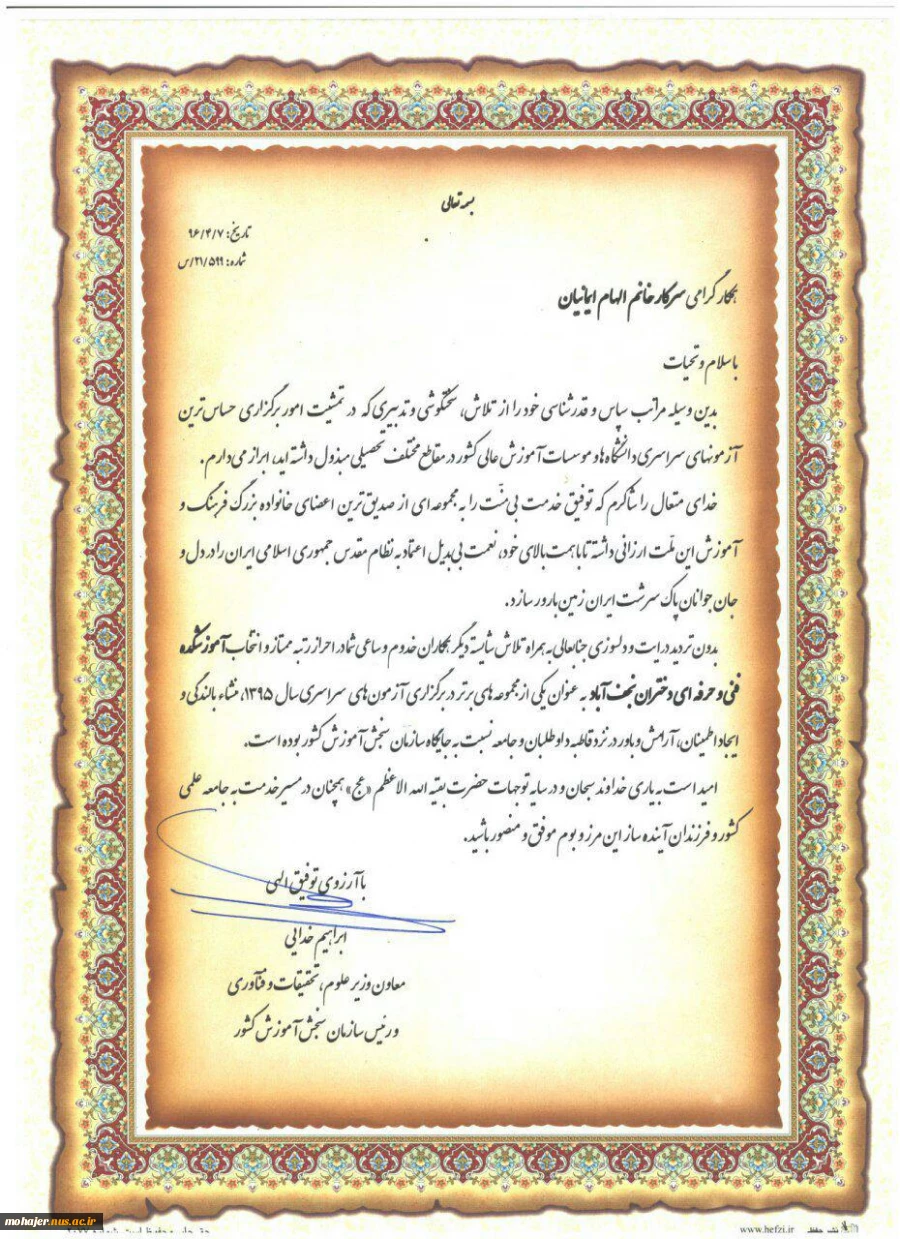 بسمه تعالی
تاریخ: ۹۶/۴/۷
شماره: ۲۱/۵۹۹/س
همکار گرامی سرکار خانم الهام ایمانیان
با سلام و تحیات
بدین وسیله مراتب سپاس و قدرشناسی خود را از تلاش، سختکوشی و تدبیری که در تمشیت امور برگزاری حساس ترین
آزمونهای سراسری دانشگاه ها و موسسات آموزش عالی کشور در مقاطع مختلف تحصیلی مبذول داشته اید، ابراز می دارم.
خدای متعال را شاکرم که توفیق خدمت بی منّت را به مجموعه ای از صدیق ترین اعضای خانواده بزرگ فرهنگ و
آموزش این ملّت ارزانی داشته تا با همت بالای خود، نعمت بی بدیل اعتماد به نظام مقدس جمهوری اسلامی ایران را در دل و
جان جوانان پاک سرشت ایران زمین بارور سازد.
بدون تردید درایت و دلسوزی جنابعالی به همراه تلاش شایسته دیگر همکاران خدوم و ساعی شما در احراز رتبه ممتاز و انتخاب آموزشکده
فنی و حرفه ای دختران نجف آباد به عنوان یکی از مجموعه های برتر در برگزاری آزمون های سراسری سال ۱۳۹۵، منشاء بالندگی و
ایجاد اطمینان، آرامش و باور در نزد قاطبه داوطلبان و جامعه نسبت به جایگاه سازمان سنجش آموزش کشور بوده است.
امید است به یاری خداوند سبحان و در سایه توجهات حضرت بقیه الله الاعظم «عج» همچنان در مسیر خدمت به جامعه علمی
کشور و فرزندان آینده ساز این مرز و بوم موفق و منصور باشید.
با آرزوی توفیق الهی
ابراهیم خدایی
معاون وزیر علوم، تحقیقات و فنّآوری
و رئیس سازمان سنجش آموزش کشور
mohajer.nus.ac.ir
www.hefzi.ir